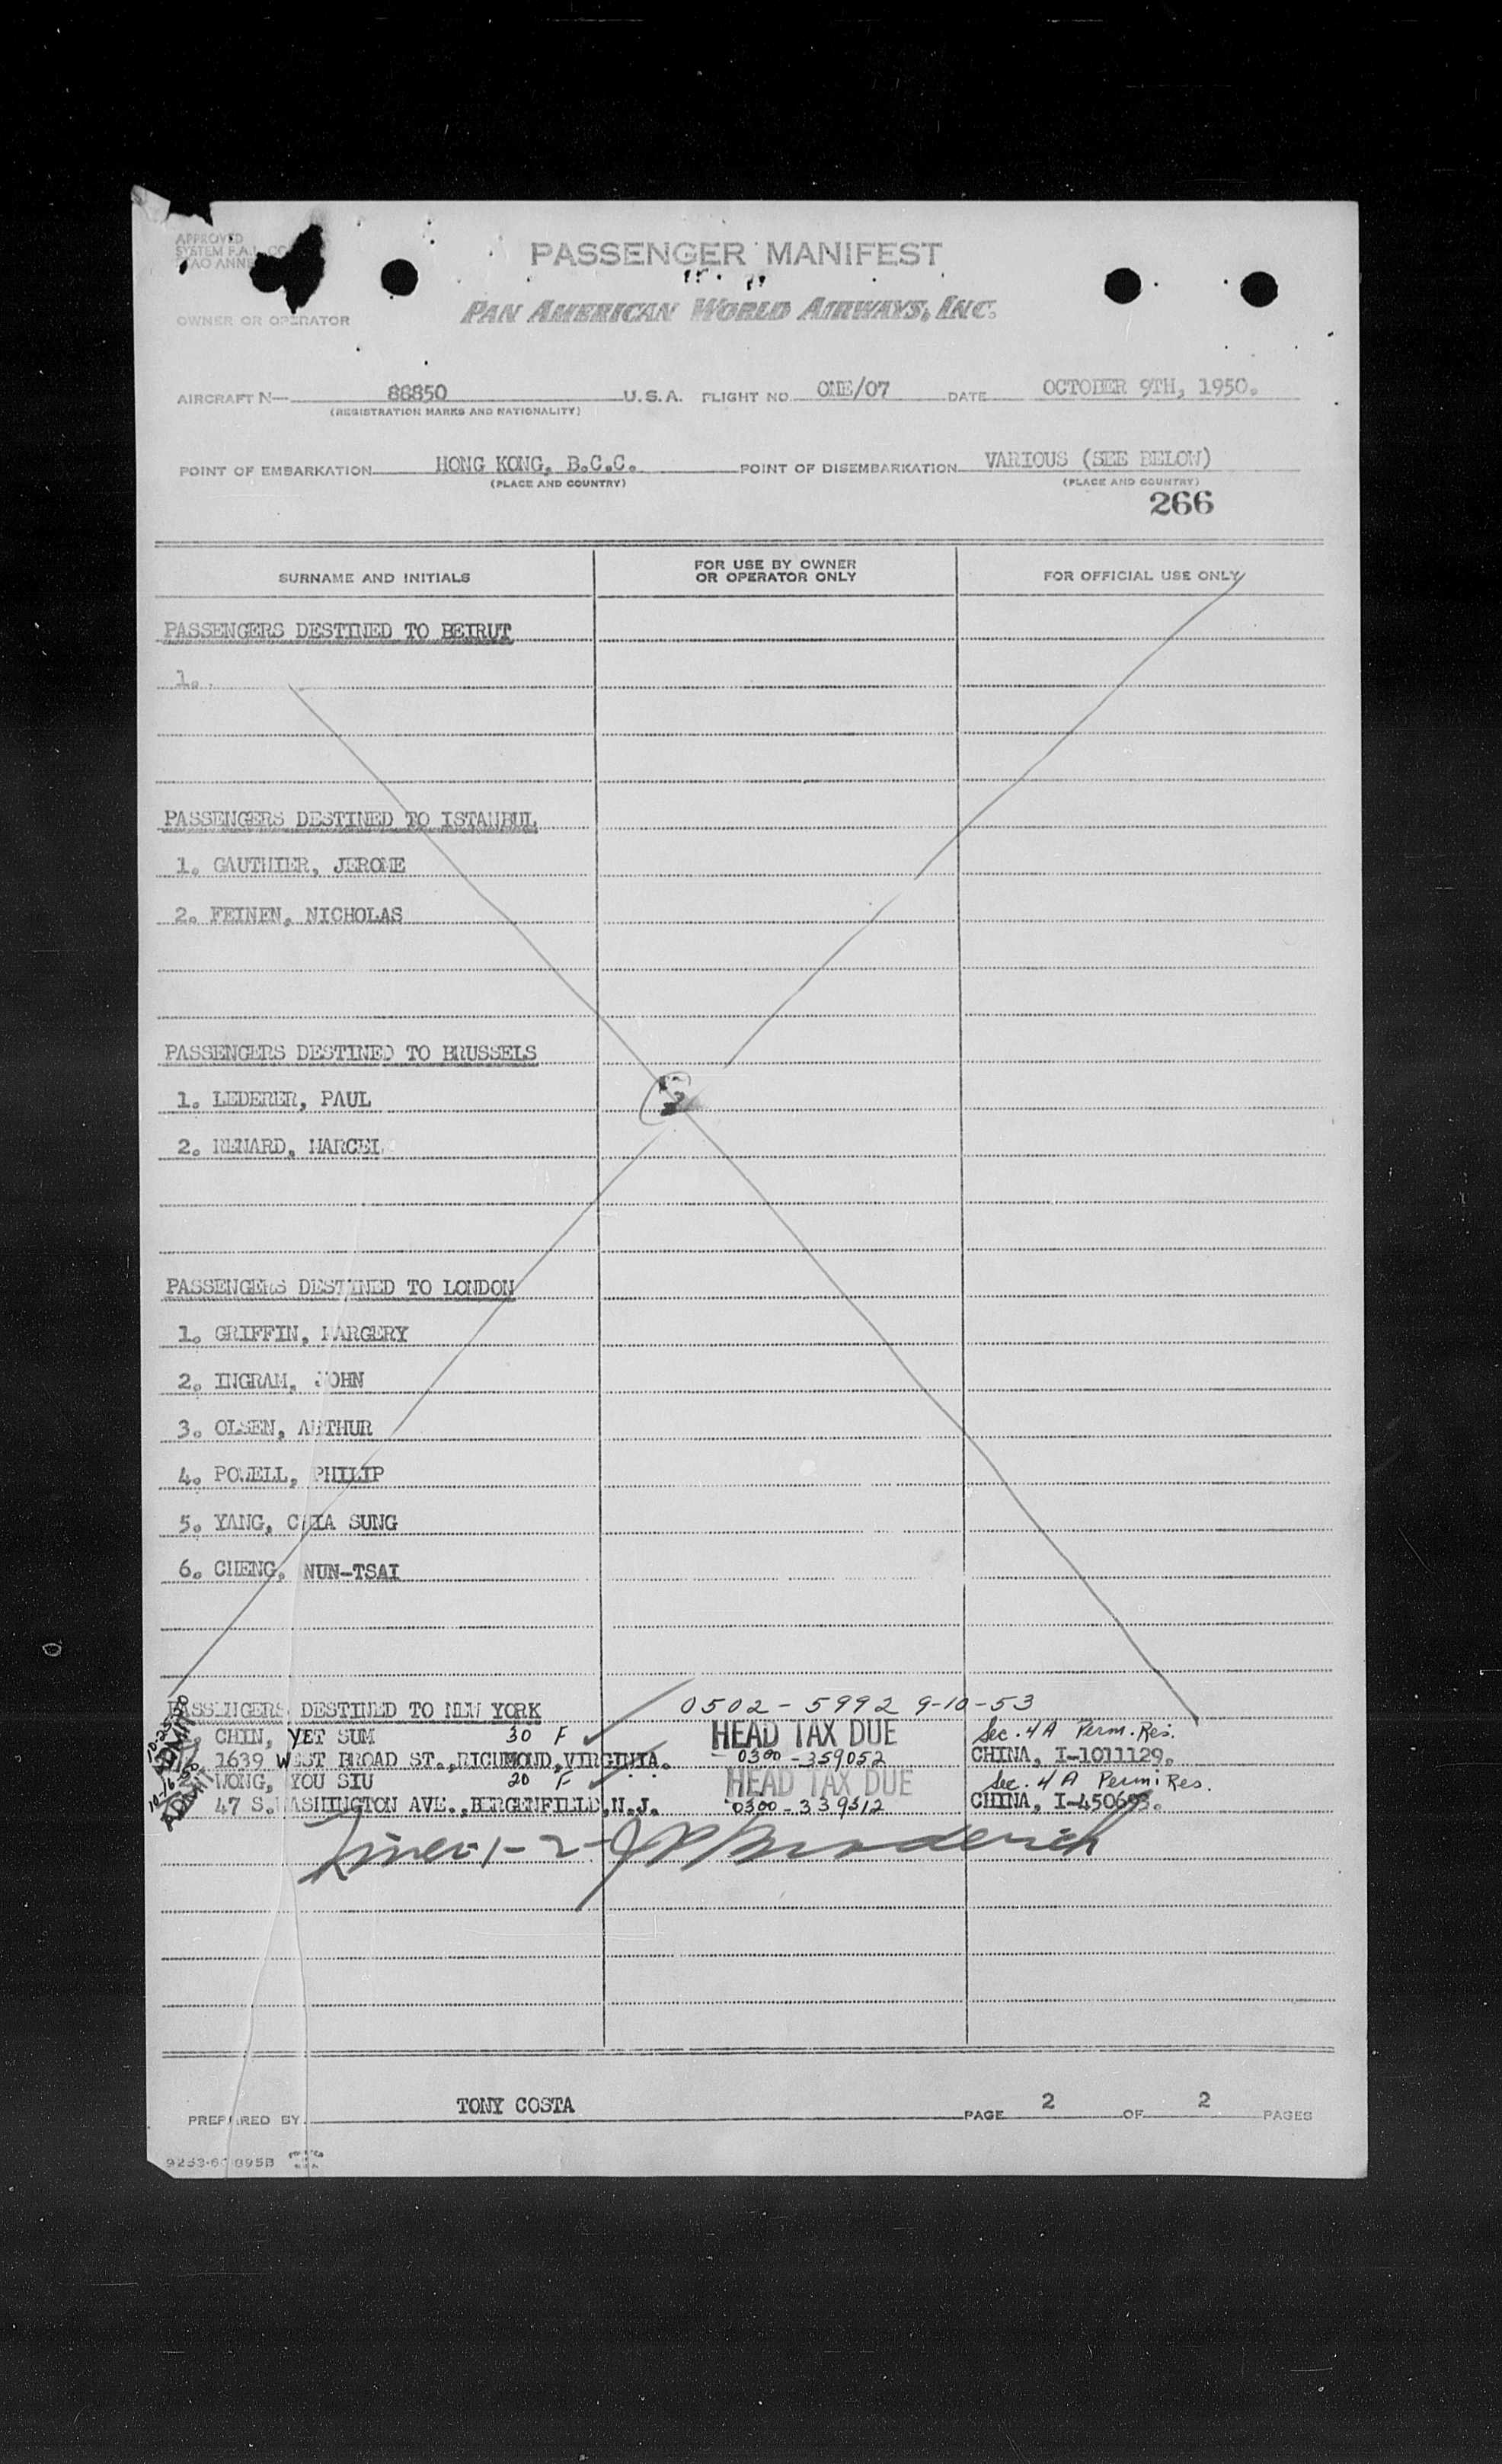 APPROVED
SYSTEM F.A.L. CO
OWNER OR OPERATOR
PASSENGER MANIFEST
PAN AMERICAN WORLD AIRWAYS, INC.
AIRCRAFT N— 88850 U.S.A. FLIGHT NO. ONE/07 DATE OCTOBER 9TH, 1950.
(REGISTRATION MARKS AND NATIONALITY)
POINT OF EMBARKATION HONG KONG, B.C.C. POINT OF DISEMBARKATION VARIOUS (SEE BELOW)
(PLACE AND COUNTRY) (PLACE AND COUNTRY)
266
SURNAME AND INITIALS FOR USE BY OWNER OR OPERATOR ONLY FOR OFFICIAL USE ONLY
PASSENGERS DESTINED TO BEIRUT
1.
PASSENGERS DESTINED TO ISTANBUL
1. GAUTHIER, JEROME
2. FEINEN, NICHOLAS
PASSENGERS DESTINED TO BRUSSELS
1. LEDERER, PAUL
2. RENARD, MARCEL
PASSENGERS DESTINED TO LONDON
1. GRIFFIN, MARGERY
2. INGRAM, JOHN
3. OLSEN, ARTHUR
4. POWELL, PHILIP
5. YANG, CHIA SUNG
6. CHENG, NUN-TSAI
PASSENGERS DESTINED TO NEW YORK 0502-5992 9-10-53
CHIN, YET SUM 30 F HEAD TAX DUE Sec. 4A Perm. Res.
1639 WEST BROAD ST., RICHMOND, VIRGINIA. 0300-359052 CHINA, I-1011129.
WONG, YOU SIU 20 F HEAD TAX DUE Sec. 4A Perm. Res.
47 S. WASHINGTON AVE., BERGENFIELD, N.J. 0300-339312 CHINA, I-450693.
ADMIT
ADMIT
Lines 1-2- JP Broderick
PREPARED BY TONY COSTA PAGE 2 OF 2 PAGES